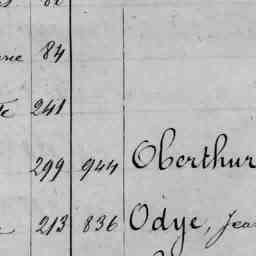 84
241
299 944 Oberthur
213 836 Odye, Jea